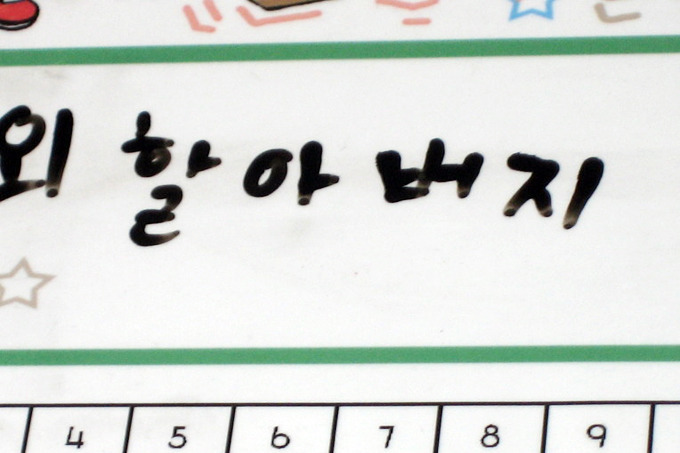 외 할아버지
4 5 6 7 8 9